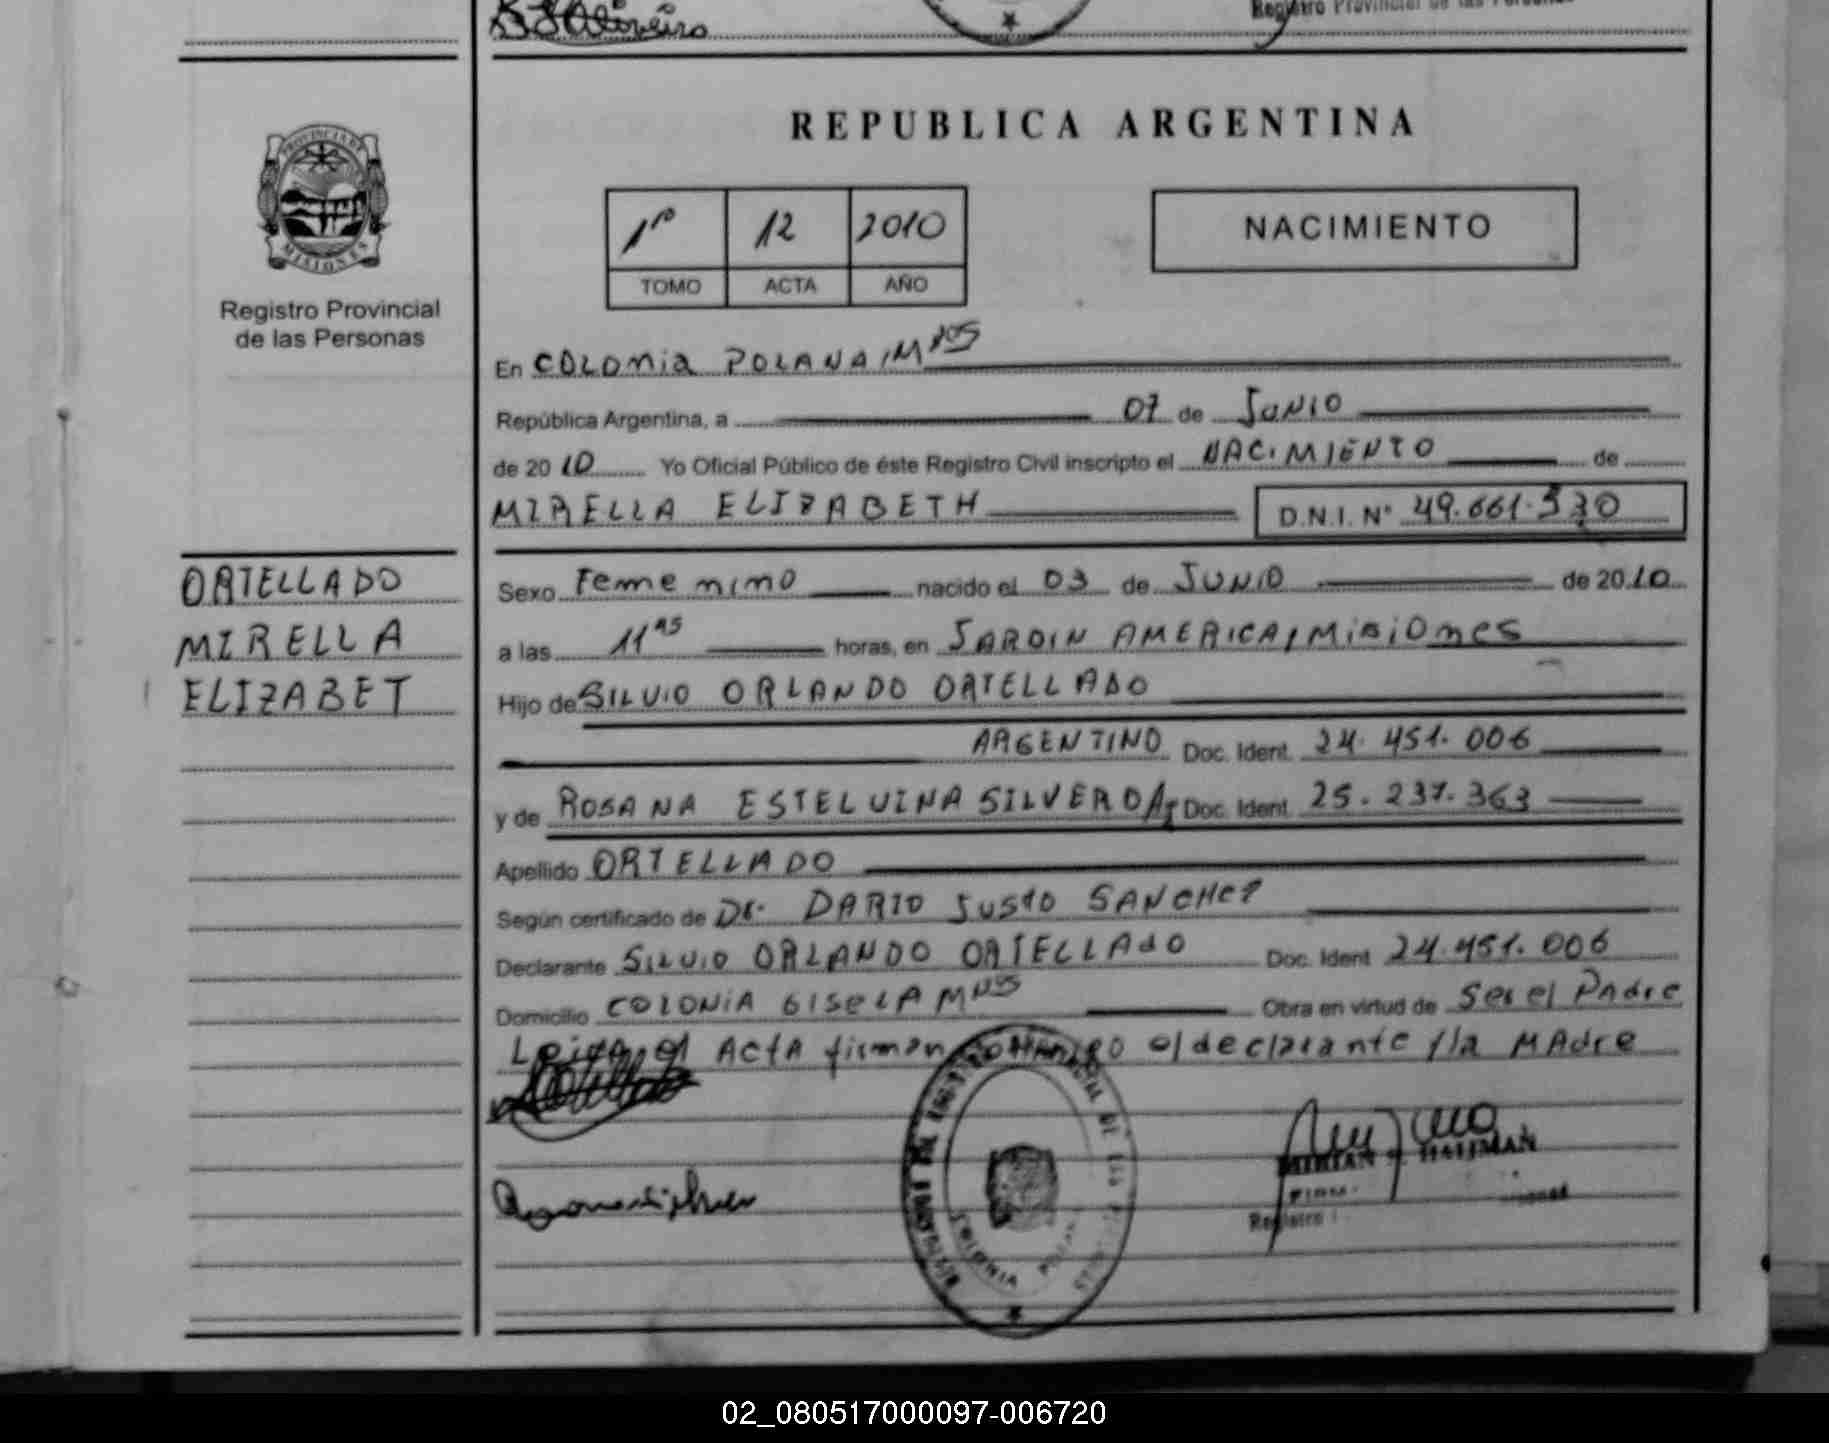 Registro Provincial de las Personas
REPUBLICA ARGENTINA
PROVINCIA DE
MISIONES
Registro Provincial
de las Personas
1º 12 2010
TOMO ACTA AÑO
NACIMIENTO
En COLONIA POLANA, Mnes
República Argentina, a 07 de JUNIO
de 2010 Yo Oficial Público de éste Registro Civil inscripto el NACIMIENTO de
MIRELLA ELIZABETH D.N.I. Nº 49.661.530
ORTELLADO
MIRELLA
ELIZABET
Sexo Femenino nacido el 03 de JUNIO de 2010
a las 11 hs horas, en JARDIN AMERICA, MISIONES
Hijo de SILVIO ORLANDO ORTELLADO
ARGENTINO Doc. Ident. 24.451.006
y de ROSANA ESTELVINA SILVERO Doc. Ident. 25.237.363
Apellido ORTELLADO
Según certificado de Dr. DARIO JUSTO SANCHEZ
Declarante SILVIO ORLANDO ORTELLADO Doc. Ident 24.451.006
Domicilio COLONIA GISELA Mnes Obra en virtud de Ser el Padre
Leida el ACtA firman conmigo el declarante y la MAdre
COLONIA POLANA
02_080517000097-006720